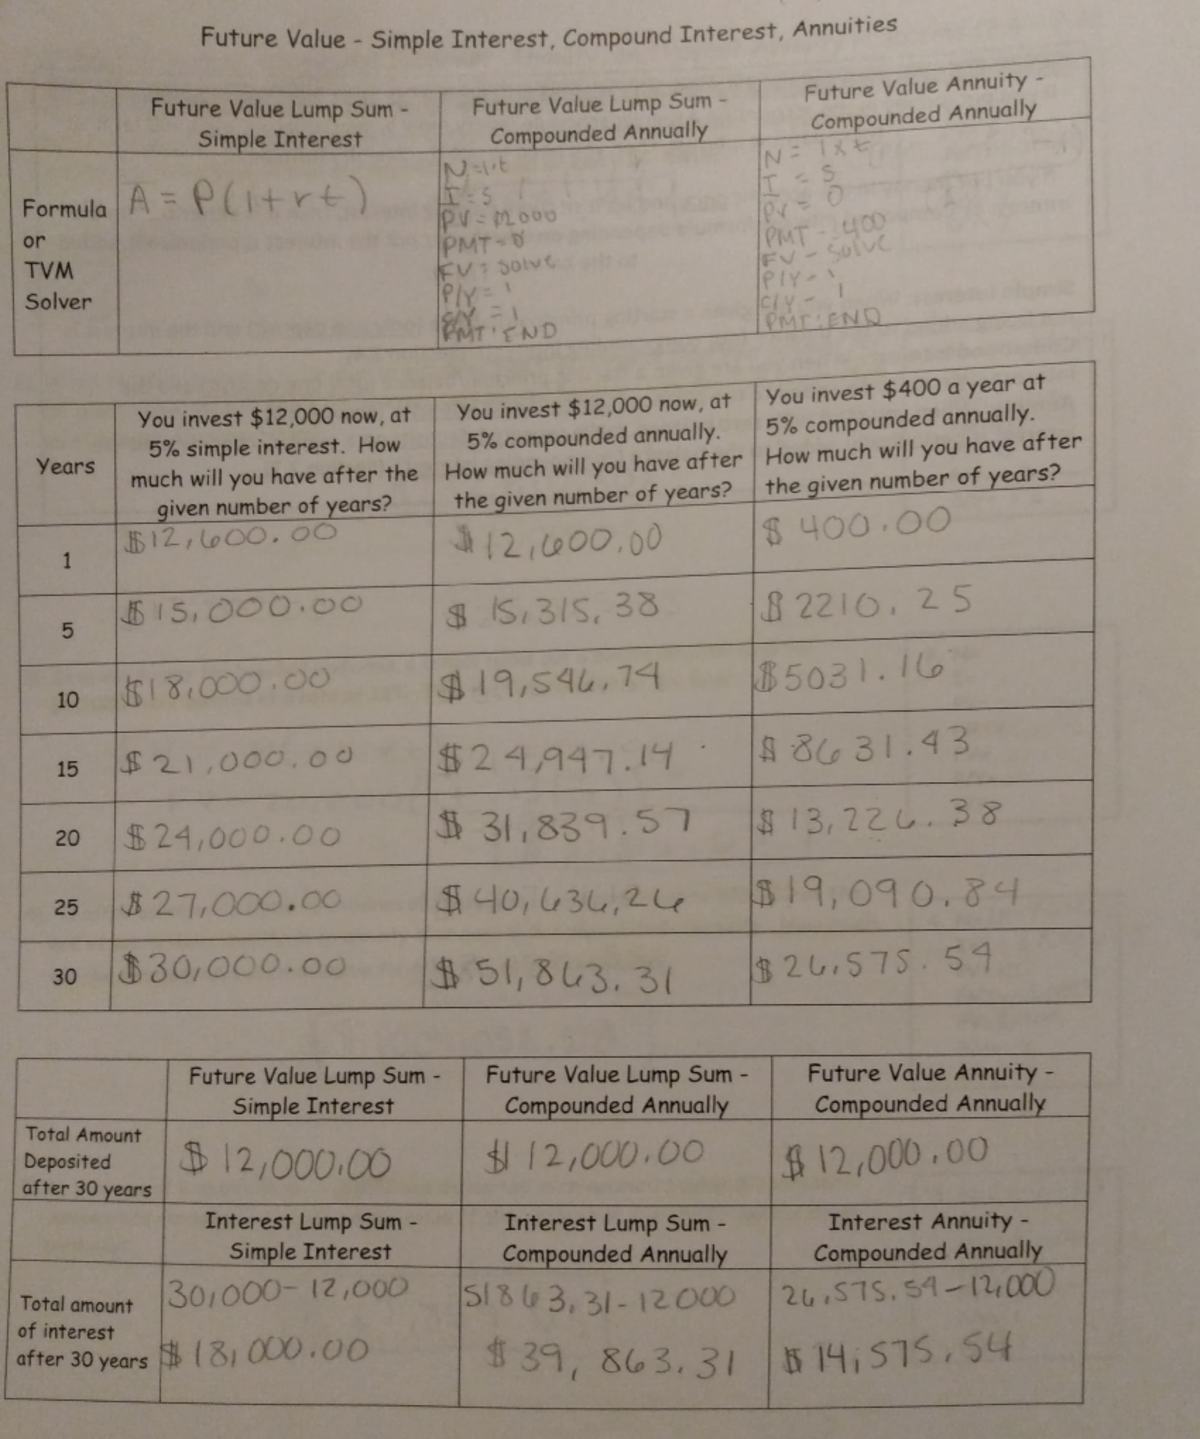 Future Value - Simple Interest, Compound Interest, Annuities
Future Value Lump Sum -
Simple Interest
Future Value Lump Sum -
Compounded Annually
Future Value Annuity -
Compounded Annually
Formula
or
TVM
Solver
A = P(1+rt)
N=1·t
I=5
PV=12000
PMT=0
FV=solve
P/Y=1
C/Y=1
PMT:END
N=1xt
I=5
PV=0
PMT-400
FV-solve
P/Y-1
C/Y-1
PMT:END
Years
You invest $12,000 now, at
5% simple interest. How
much will you have after the
given number of years?
You invest $12,000 now, at
5% compounded annually.
How much will you have after
the given number of years?
You invest $400 a year at
5% compounded annually.
How much will you have after
the given number of years?
1
$12,600.00
$12,600.00
$400.00
5
$15,000.00
$15,315.38
$2210.25
10
$18,000.00
$19,546.74
$5031.16
15
$21,000.00
$24,947.14
$8631.43
20
$24,000.00
$31,839.57
$13,226.38
25
$27,000.00
$40,636,26
$19,090.84
30
$30,000.00
$51,863.31
$26,575.54
Future Value Lump Sum -
Simple Interest
Future Value Lump Sum -
Compounded Annually
Future Value Annuity -
Compounded Annually
Total Amount
Deposited
after 30 years
$12,000.00
$12,000.00
$12,000.00
Interest Lump Sum -
Simple Interest
Interest Lump Sum -
Compounded Annually
Interest Annuity -
Compounded Annually
Total amount
of interest
after 30 years
30,000-12,000
$18,000.00
51863.31-12000
$39,863.31
26,575.54-12,000
$14,575.54